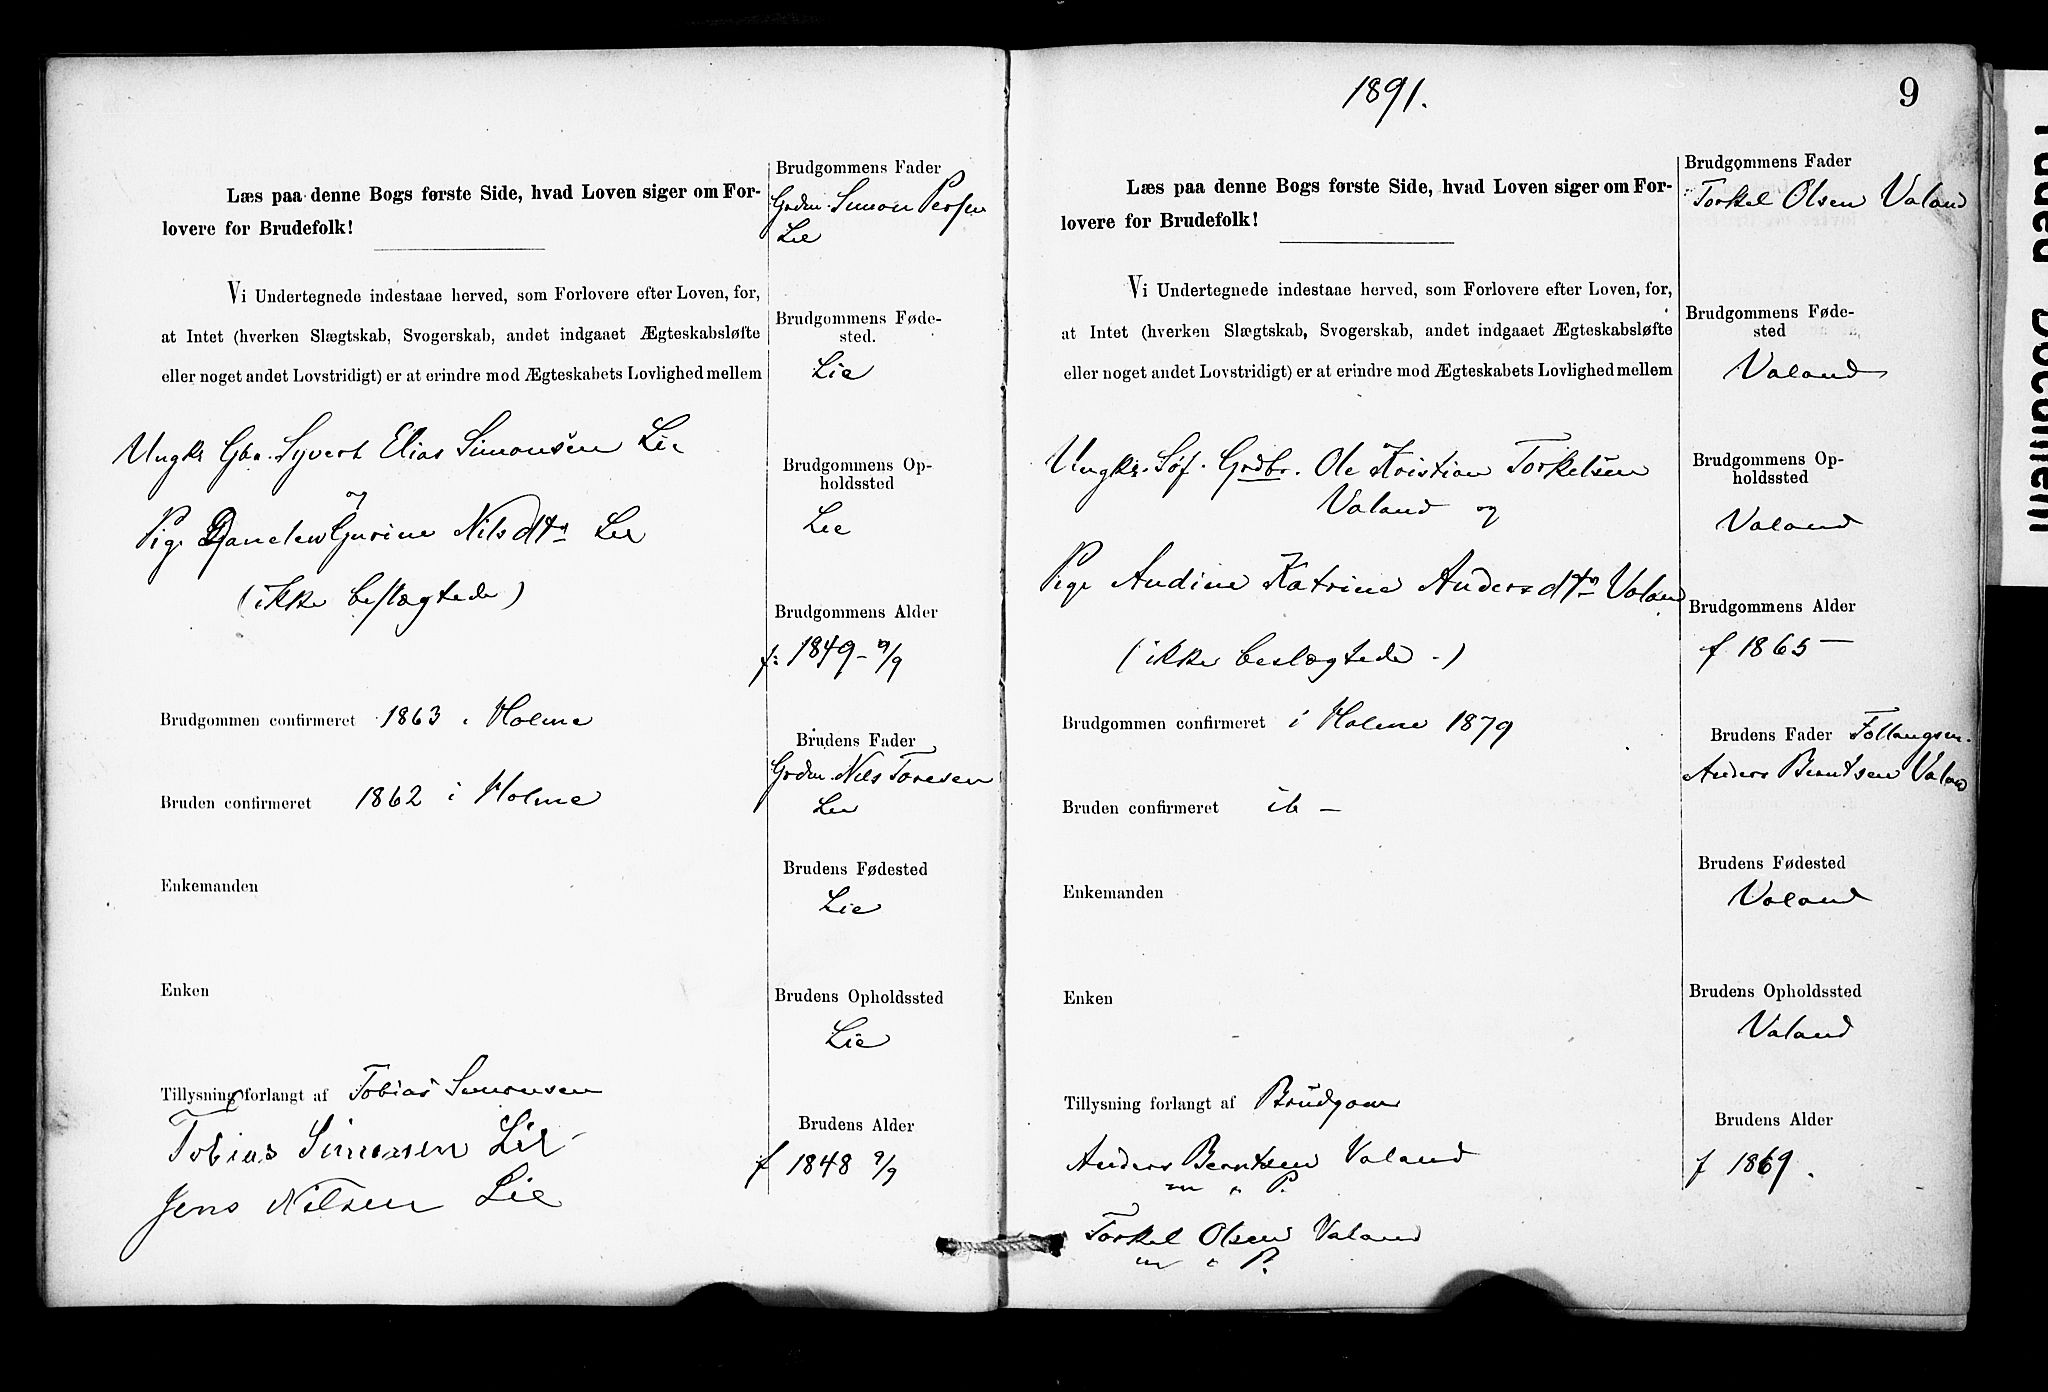 Læs paa denne Bogs første Side, hvad Loven siger om For-
lovere for Brudefolk!
Vi Undertegnede indestaae herved, som Forlovere efter Loven, for,
at Intet (hverken Slægtskab, Svogerskab, andet indgaaet Ægteskabsløfte
eller noget andet Lovstridigt) er at erindre mod Ægteskabets Lovlighed mellem
Ungkr Gbr. Syvert Elias Simonsen Lie
og
Pige Gurine Nilsdtr Lie
(ikke beslægtede)
Brudgommen confirmeret 1863 i Holme
Bruden confirmeret 1862 i Holme
Enkemanden
Enken
Tillysning forlangt af Tobias Simonsen
Tobias Simonsen Lie
Jens Nilsen Lie
Brudgommens Fader
Grdm. Simon Persen
Lie
BrudgommensFøde-
sted.
Lie
Brudgommens Op-
holdssted
Lie
Brudgommens Alder
f: 1849 - 9/9
Brudens Fader
Grdm. Nils Toresen
Lie
Brudens Fødested
Lie
Brudens Opholdssted
Lie
Brudens Alder
f 1848 9/9
1891.
9
Læs paa denne Bogs første Side, hvad Loven siger om For-
lovere for Brudefolk!
Vi Undertegnede indestaae herved, som Forlovere efter Loven, for,
at Intet (hverken Slægtskab, Svogerskab, andet indgaaet Ægteskabsløfte
eller noget andet Lovstridigt) er at erindre mod Ægteskabets Lovlighed mellem
Ungkr. Søf. Grdbr. Ole Kristian Torkelsen
Valand og
Pige Andine Katrine Andersdtr Valand
(ikke beslægtede -)
Brudgommen confirmeret i Holme 1879
Bruden confirmeret ib -
Enkemanden
Enken
Tillysning forlangt af Brudgom
Anders Berntsen Valand
m i P.
Torkel Olsen Valand
m i P.
Brudgommens Fader
Torkel Olsen Valand
Brudgommens Føde-
sted
Valand
Brudgommens Op-
holdssted
Valand
Brudgommens Alder
f 1865 -
Brudens Fader
Anders Berntsen Valand
Brudens Fødested
Valand
Brudens Opholdssted
Valand
Brudens Alder
f 1869.